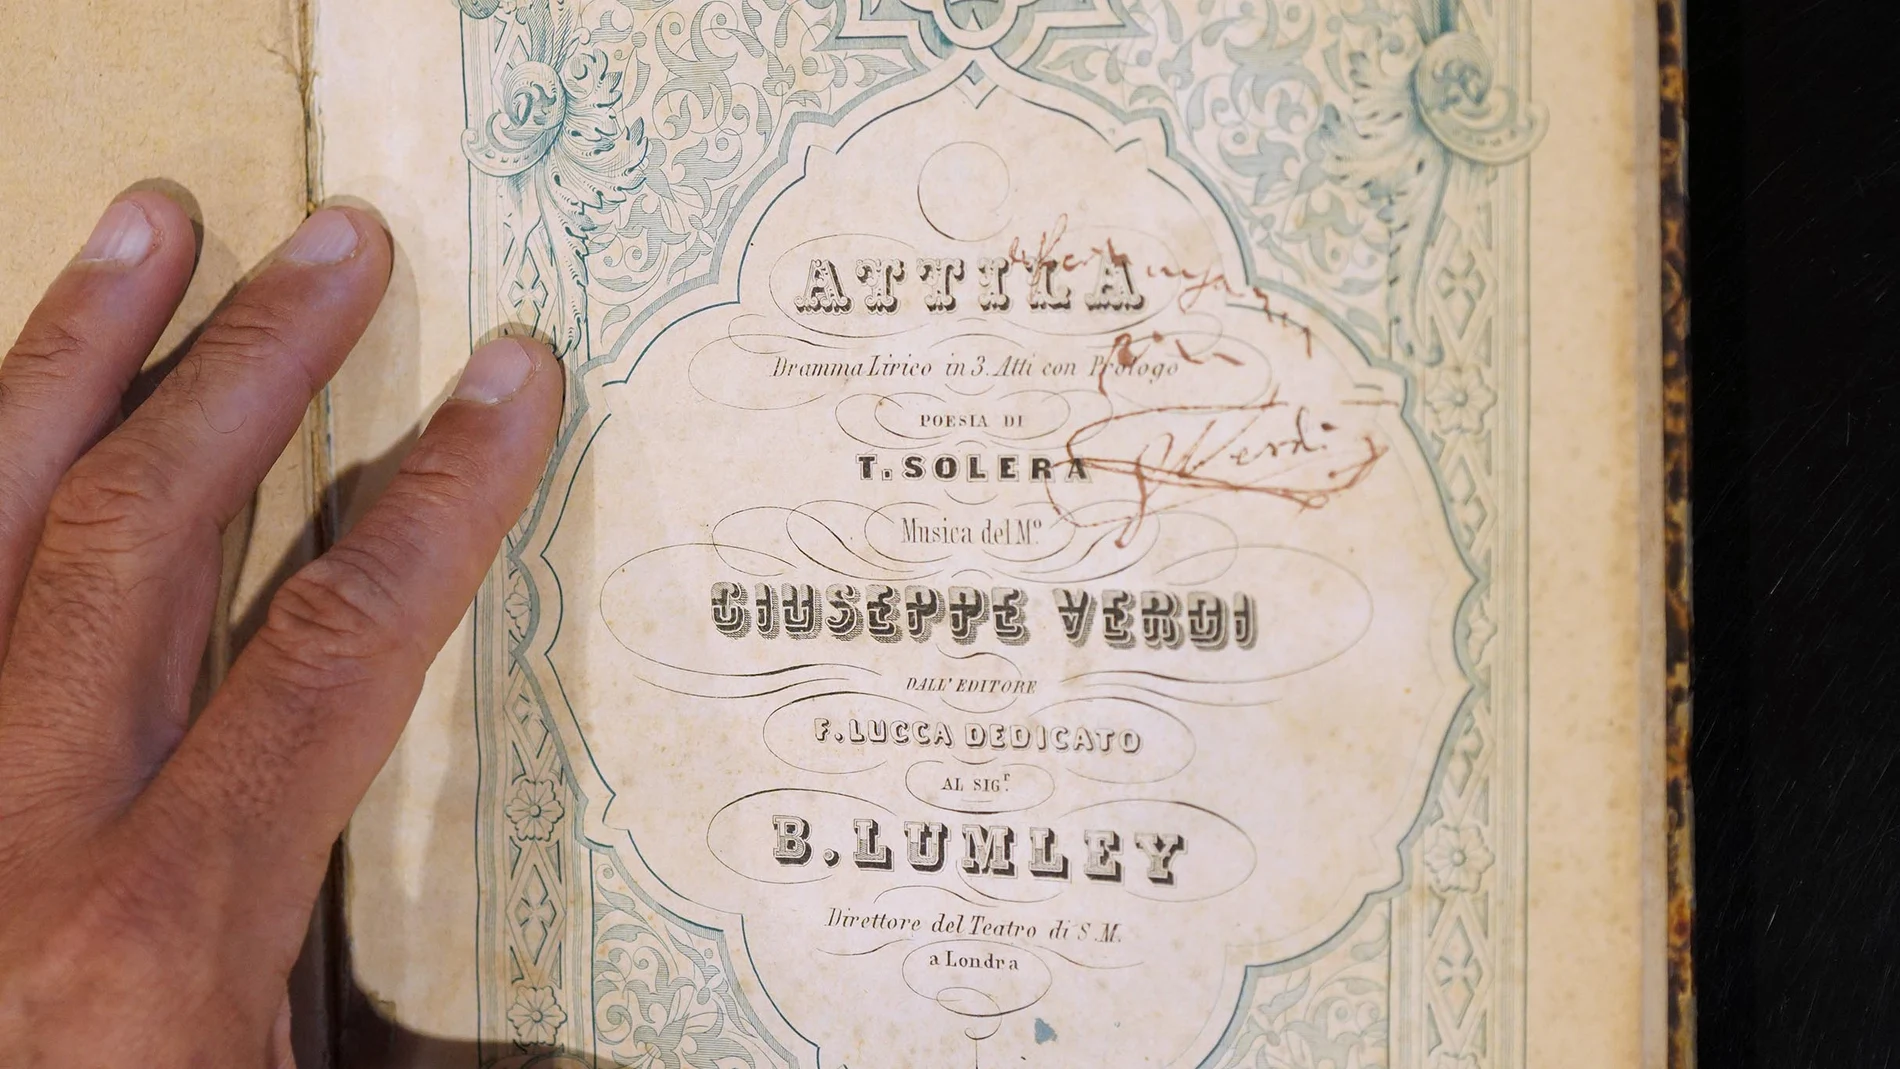 ATTILA
Dramma Lirico in 3. Atti con Prologo
POESIA DI
T. SOLERA
G Verdi
Musica del Mº.
GIUSEPPE VERDI
DALL' EDITORE
F. LUCCA DEDICATO
AL SIGʳ.
B. LUMLEY
Direttore del Teatro di S. M.
a Londra